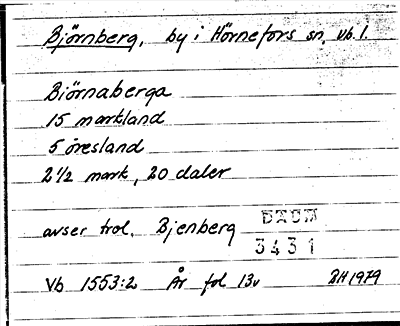 Björnberg, by i Hörnefors sn, Vb. l.
Biörnaberga
15 markland
5 öresland
2 1/2 mark, 20 daler
avser trol. Bjenberg
3431
Vb 1553:2 År fol 13v BH 1979